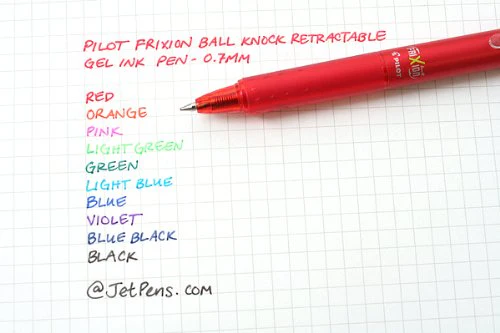 PILOT FRIXION BALL KNOCK RETRACTABLE
GEL INK PEN - 0.7MM
RED
ORANGE
PINK
LIGHT GREEN
GREEN
LIGHT BLUE
BLUE
VIOLET
BLUE BLACK
BLACK
@JetPens.com
FRIXION
PILOT